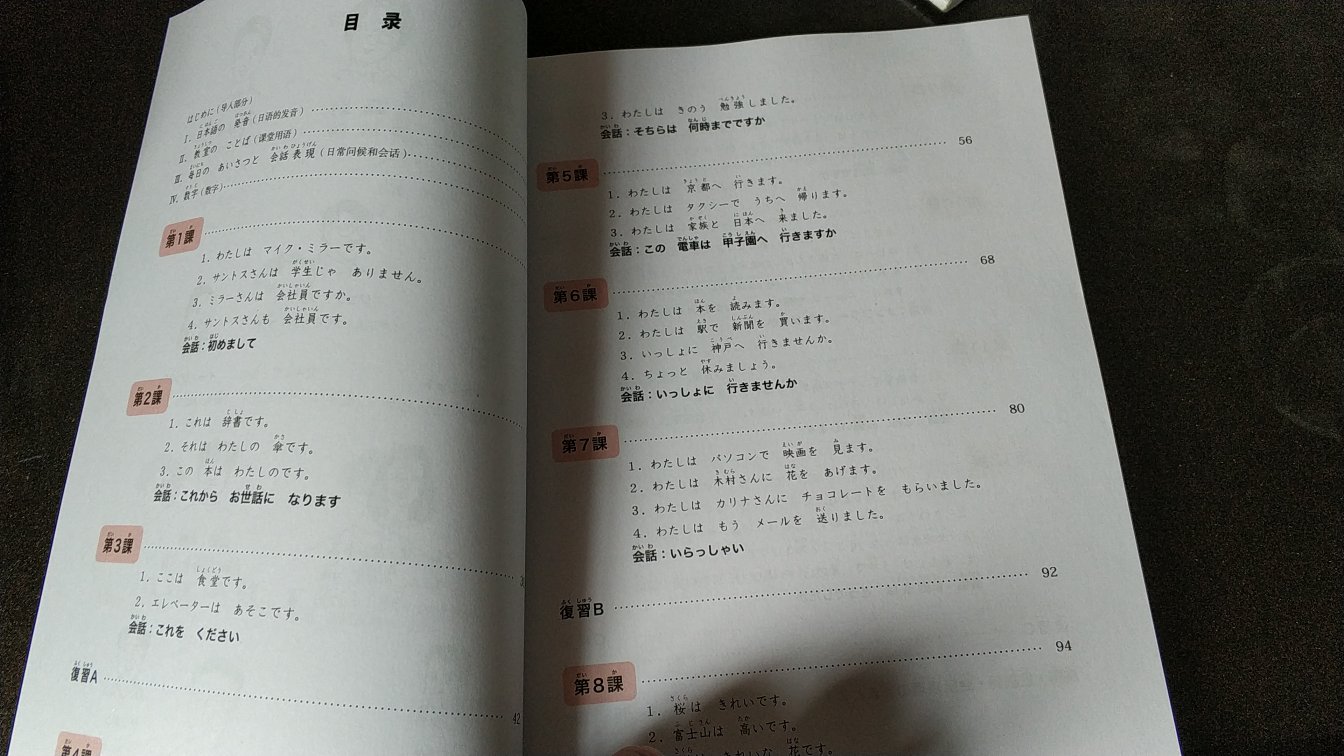 目 录
はじめに(导入部分)
Ⅰ. 日本語の 発音(日语的发音)
Ⅱ. 教室の ことば(课堂用语)
Ⅲ. 毎日の あいさつと 会話表現(日常问候和会话)
Ⅳ. 数字(数字)
第1課
1. わたしは マイク・ミラーです。
2. サントスさんは 学生じゃ ありません。
3. ミラーさんは 会社員ですか。
4. サントスさんも 会社員です。
会話:初めまして
第2課
1. これは 辞書です。
2. それは わたしの 傘です。
3. この 本は わたしのです。
会話:これから お世話に なります
第3課
1. ここは 食堂です。
2. エレベーターは あそこです。
会話:これを ください
復習A 42
第4課
3. わたしは きのう 勉強しました。
会話:そちらは 何時までですか
第5課 56
1. わたしは 京都へ 行きます。
2. わたしは タクシーで うちへ 帰ります。
3. わたしは 家族と 日本へ 来ました。
会話:この 電車は 甲子園へ 行きますか
第6課 68
1. わたしは 本を 読みます。
2. わたしは 駅で 新聞を 買います。
3. いっしょに 神戸へ 行きませんか。
4. ちょっと 休みましょう。
会話:いっしょに 行きませんか
第7課 80
1. わたしは パソコンで 映画を 見ます。
2. わたしは 木村さんに 花を あげます。
3. わたしは カリナさんに チョコレートを もらいました。
4. わたしは もう メールを 送りました。
会話:いらっしゃい
復習B 92
第8課 94
1. 桜は きれいです。
2. 富士山は 高いです。
きれいな 花です。